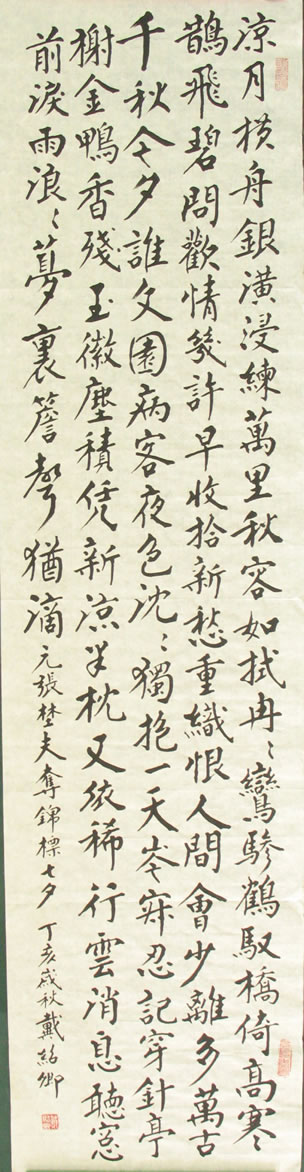 涼月橫舟銀潢浸練萬里秋容如拭冉〻鸞驂鶴馭橋倚高寒
鵲飛碧問歡情幾許早收拾新愁重織恨人間會少離多萬古
千秋今夕誰文園病客夜色沈〻獨抱一天岑寂忍記穿針亭
榭金鴨香殘玉徽塵積凭新涼半枕又依稀行雲消息聽窓
前淚雨浪〻夢裏簷聲猶滴 元張埜夫奪錦標七夕 丁亥秋戴紹卿